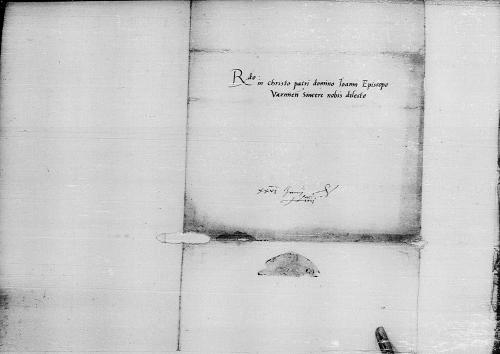 Rdo in christo patri domino Ioanni Episcopo
Varmien sincere nobis dilecto